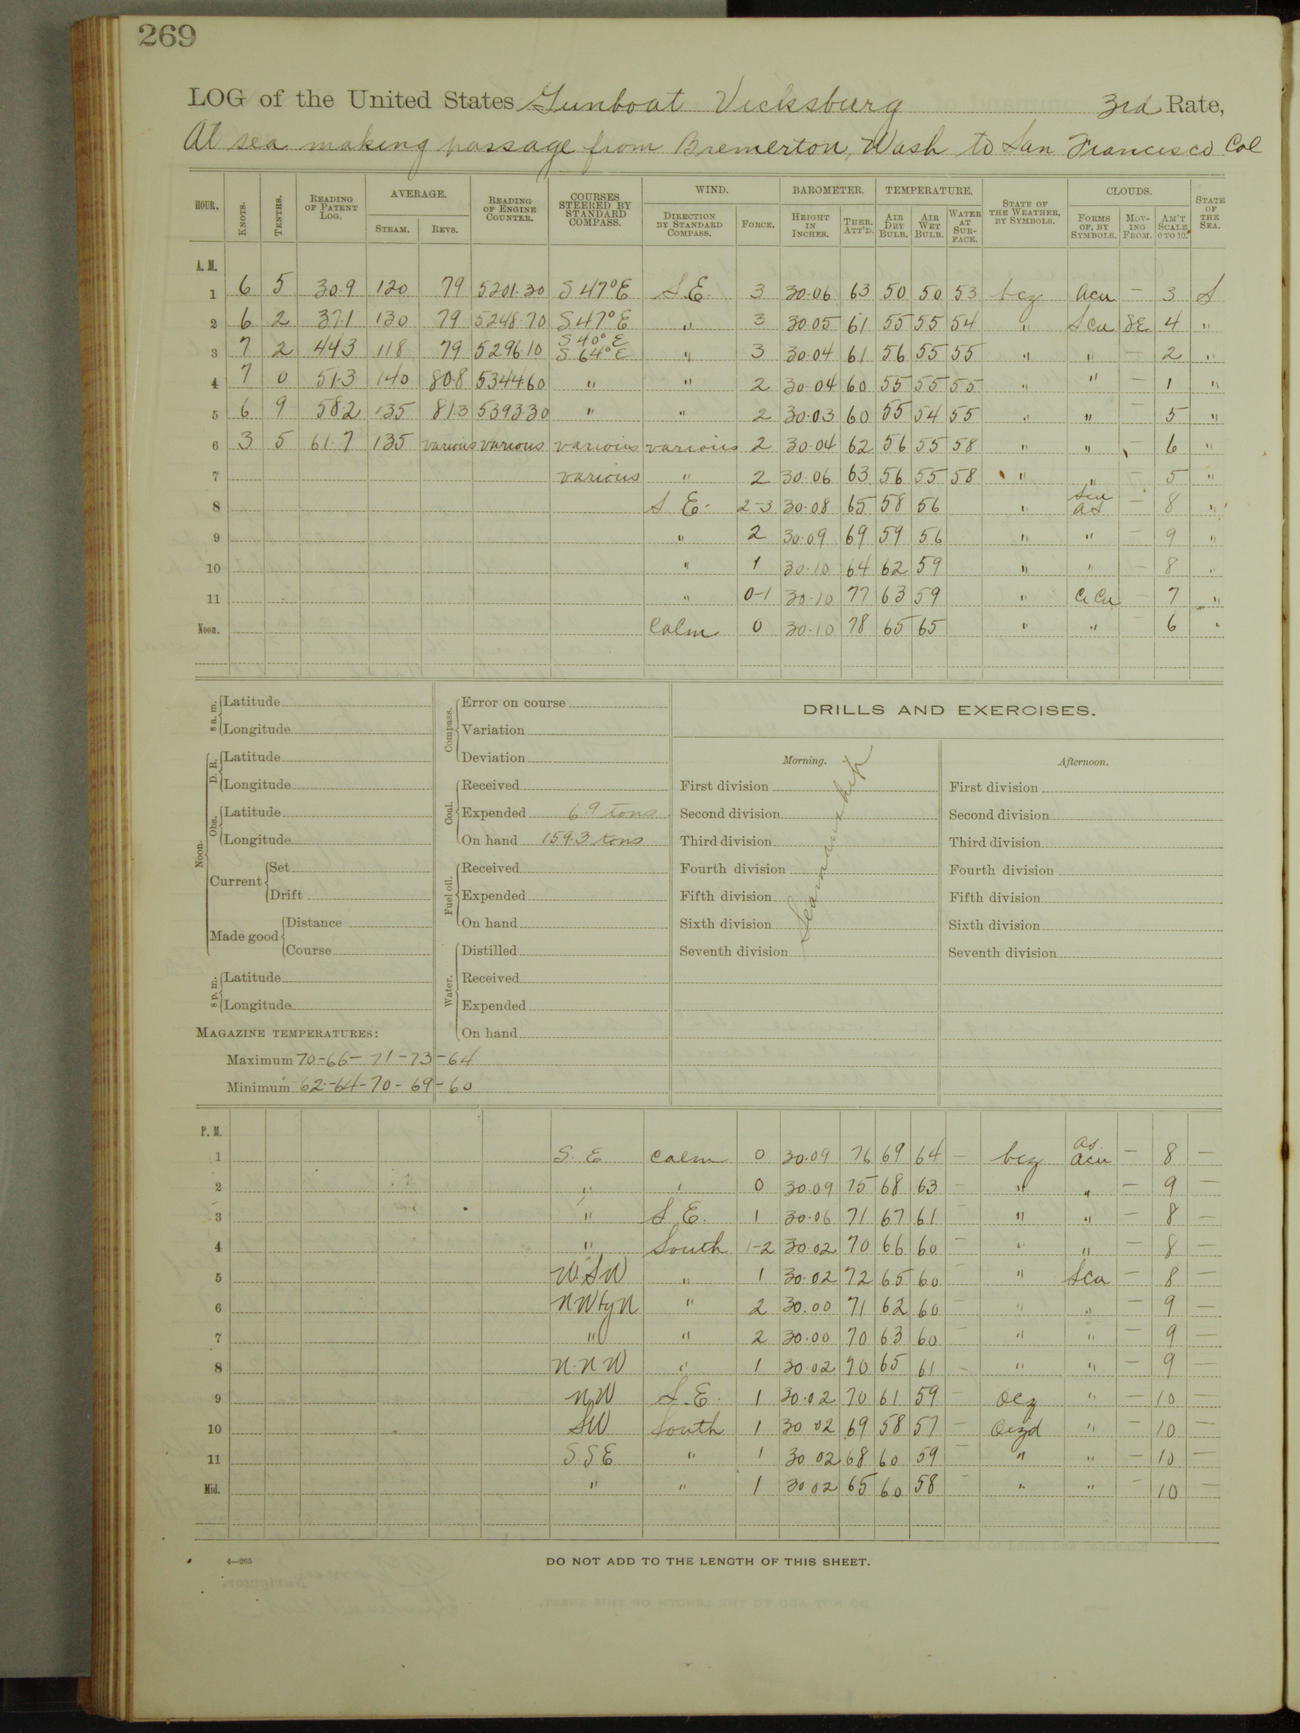 269
LOG of the United States Gunboat Vicksburg 3rd Rate,
At sea making passage from Bremerton, Wash to San Francisco Cal
HOUR. KNOTS. TENTHS. READING OF PATENT LOG. AVERAGE. STEAM. REVS. READING OF ENGINE COUNTER. COURSES STEERED BY STANDARD COMPASS. WIND. DIRECTION BY STANDARD COMPASS. FORCE. BAROMETER. HEIGHT IN INCHES. THER. ATT'D. TEMPERATURE. AIR DRY BULB. AIR WET BULB. WATER AT SURFACE. STATE OF THE WEATHER, BY SYMBOLS. CLOUDS. FORMS OF, BY SYMBOLS. MOVING FROM. AM'T SCALE 0 TO 10. STATE OF THE SEA.
A. M.
1 6 5 30.9 120 79 5201.30 S 47° E S.E. 3 30.06 63 50 50 53 bcz acu — 3 S
2 6 2 37.1 130 79 5248.70 S 47° E " 3 30.05 61 55 55 54 " Scu SE 4 "
3 7 2 44.3 118 79 529610 S 40° E S 64° E " 3 30.04 61 56 55 55 " " — 2 "
4 7 0 51.3 140 80.8 534460 " " 2 30.04 60 55 55 55 " — 1 "
5 6 9 58.2 135 81.3 539330 " " 2 30.03 60 55 54 55 " " — 5 "
6 3 5 61.7 135 various various various various 2 30.04 62 56 55 58 " " 6 "
7 various " 2 30.06 63 56 55 58 " " — 5 "
8 S E. 2-3 30.08 65 58 56 " Scu as — 8 "
9 " 2 30.09 69 59 56 " " — 9 "
10 " 1 30.10 64 62 59 " " — 8 "
11 " 0-1 30.10 77 63 59 " Ci Cu — 7 "
Noon. Calm 0 30.10 78 65 65 " " 6 "
8 a. m. Latitude
Longitude
Noon. D. R. Latitude
Longitude
Obs. Latitude
Longitude
Current Set
Drift
Made good Distance
Course
8 p. m. Latitude
Longitude
MAGAZINE TEMPERATURES:
Maximum 70-66-71-73-64
Minimum 62-64-70-69-60
Compass. Error on course
Variation
Deviation
Coal. Received
Expended 6.9 tons
On hand 159.3 tons
Fuel oil. Received
Expended
On hand
Water. Distilled
Received
Expended
On hand
DRILLS AND EXERCISES.
Morning. Afternoon.
Seamanship
First division First division
Second division Second division
Third division Third division
Fourth division Fourth division
Fifth division Fifth division
Sixth division Sixth division
Seventh division Seventh division
P. M.
1 S. E Calm 0 30.09 76 69 64 — bcz as. acu — 8 —
2 " " 0 30.09 75 68 63 — " " — 9 —
3 " S E. 1 30.06 71 67 61 " " — 8 —
4 " South 1-2 30.02 70 66 60 — " " — 8 —
5 W.S.W " 1 30.02 72 65 60 — " Scu — 8 —
6 NWbyN " 2 30.00 71 62 60 — " " — 9 —
7 " " 2 30.00 70 63 60 — " " — 9 —
8 N.N.W " 1 30.02 70 65 61 — " " — 9 —
9 NW S.E. 1 30.02 70 61 59 — ocz " — 10 —
10 SW South 1 30 02 69 58 57 — oczd " — 10 —
11 SSE " 1 30 02 68 60 59 — " " — 10 —
Mid. " " 1 30 02 65 60 58 — " " — 10 —
4—265
DO NOT ADD TO THE LENGTH OF THIS SHEET.